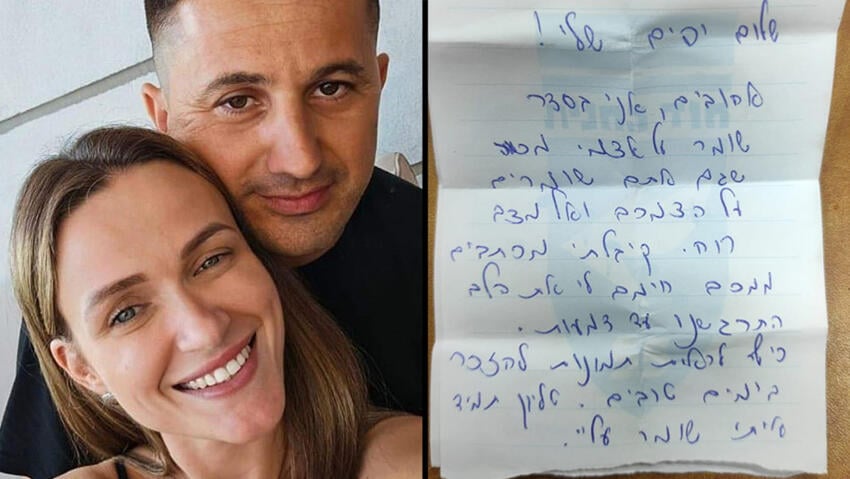 שלום יפים שלי!
אהובים, אני בסדר
שומר על עצמי מכם
שגם אתם שומרים
על הצמכם ועל מצב
רוח. קיבלתי מכתבים
ממכם חימם לי את הלב
התרגשנו עד דמעות.
כיף לראות תמונות להזכר
בימים טובים. תמיד
איתי שומר עליי.